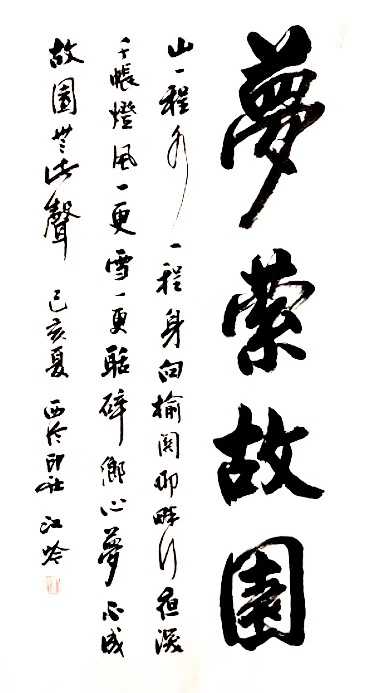 夢縈故園
山一程水一程身向榆關那畔行夜深
千帳燈風一更雪一更聒碎鄉心夢不成
故園無此聲 己亥夏 西泠印社 江吟